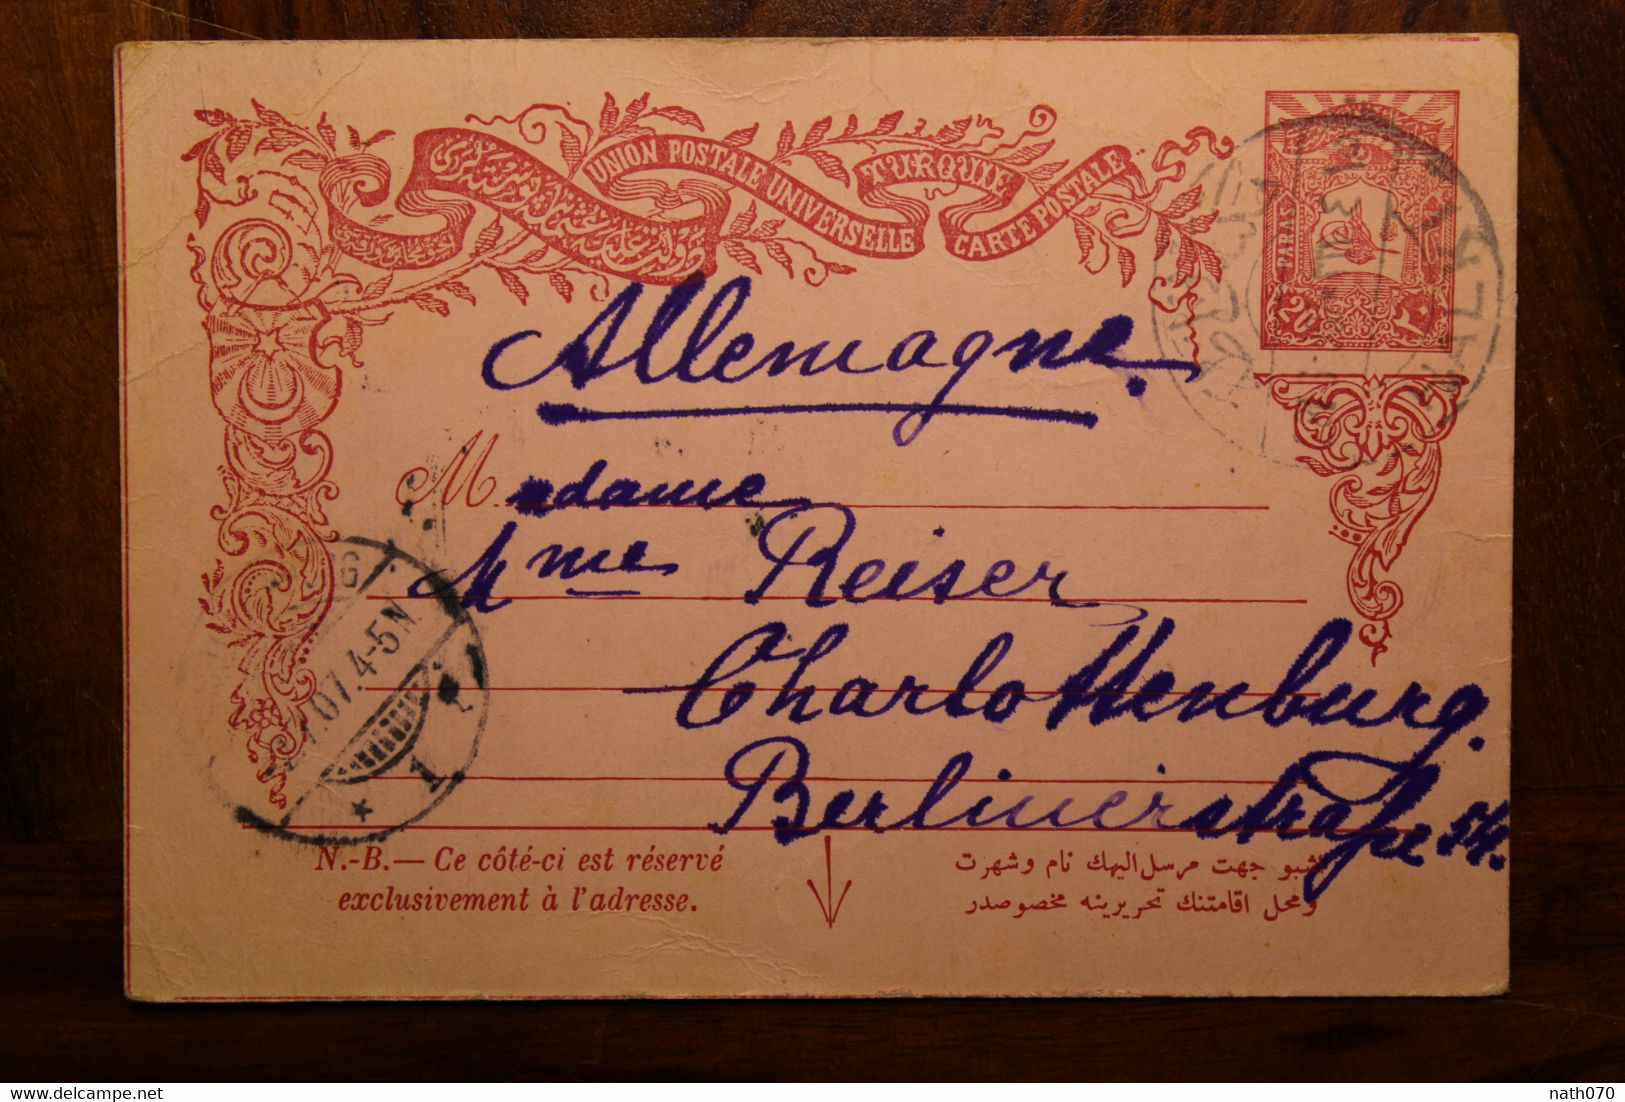 UNION POSTALE UNIVERSELLE
TURQUIE
CARTE POSTALE
PARAS
20 ٢٠
Allemagne.
M adame
Mme Reiser
Charlottenburg.
Berlinerstraße 54.
07.4-5N.
* 1
N.-B.— Ce côté-ci est réservé
exclusivement à l'adresse.
اشبو جهت مرسل اليهك نام و شهرت
ومحل اقامتنك تحريرينه مخصوصدر
nath070